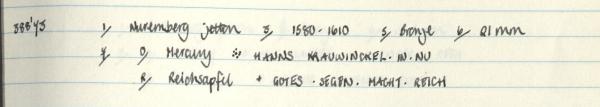 388'45 1/ Nuremberg jetton 3/ 1580-1610 5/ Bronze 6/ 21mm
4/ O/ Mercury ⁘ HANNS KRAUWINCKEL·IN·NU
R/ Reichsapfel + GOTES·SEGEN·MACHT·REICH